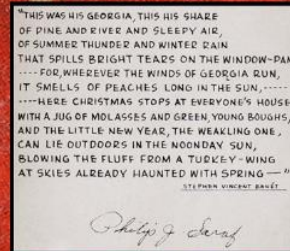 "THIS WAS HIS GEORGIA, THIS HIS SHARE
OF PINE AND RIVER AND SLEEPY AIR,
OF SUMMER THUNDER AND WINTER RAIN
THAT SPILLS BRIGHT TEARS ON THE WINDOW-PAN
----FOR, WHEREVER THE WINDS OF GEORGIA RUN,
IT SMELLS OF PEACHES LONG IN THE SUN,-----
----HERE CHRISTMAS STOPS AT EVERYONE'S HOUSE
WITH A JUG OF MOLASSES AND GREEN, YOUNG BOUGHS,
AND THE LITTLE NEW YEAR, THE WEAKLING ONE,
CAN LIE OUTDOORS IN THE NOONDAY SUN,
BLOWING THE FLUFF FROM A TURKEY-WING
AT SKIES ALREADY HAUNTED WITH SPRING—"
STEPHEN VINCENT BENÉT
Philip J.